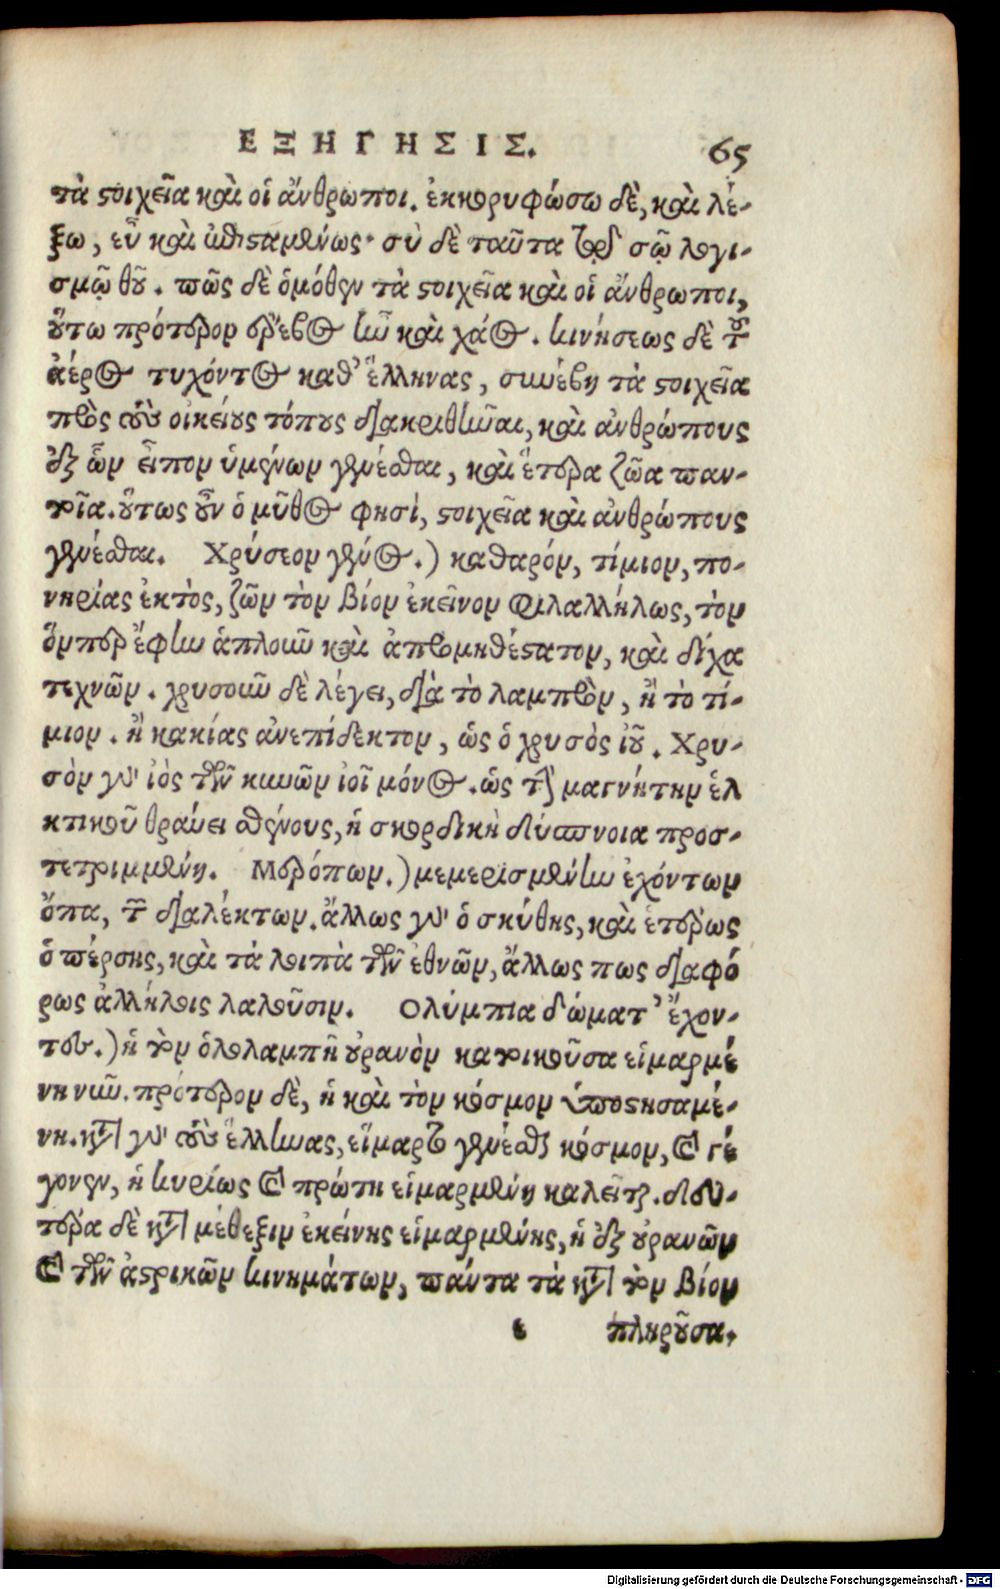 ΕΞΗΓΗΣΙΣ. 65
τὰ στοιχεῖα καὶ οἱ ἄνθρωποι. ἐκκορυφώσω δὲ, καὶ λέ-
ξω, εὖ καὶ ἐπισταμένως· σὺ δὲ ταῦτα τῷ σῷ λογι-
σμῷ θοῦ. πῶς δὲ ὁμόθεν τὰ στοιχεῖα καὶ οἱ ἄνθρωποι,
οὕτω πρότερον ἔρεβος ἦν καὶ χάος. κινήσεως δὲ τοῦ
ἀέρος τυχόντος καθ' ἕλληνας, συνέβη τὰ στοιχεῖα
πρὸς τοὺς οἰκείους τόπους διακριθῆναι, καὶ ἀνθρώπους
ἐξ ὧν εἶπον ὑμένων γενέσθαι, καὶ ἕτερα ζῶα παν-
τοῖα. οὕτως οὖν ὁ μῦθος φησὶ, στοιχεῖα καὶ ἀνθρώπους
γενέσθαι. Χρύσεον γένος.) καθαρόν, τίμιον, πο-
νηρίας ἐκτὸς, ζῶν τὸν βίον ἐκεῖνον φιλαλλήλως, τὸν
ὅνπερ ἔφην ἁπλοῦν καὶ ἀπρομηθέστατον, καὶ δίχα
τεχνῶν. χρυσοῦν δὲ λέγει, διὰ τὸ λαμπρὸν, ἢ τὸ τί-
μιον. ἢ κακίας ἀνεπίδεκτον, ὡς ὁ χρυσὸς ἰοῦ. Χρυ-
σὸν γὰρ ἰὸς τῶν κυνῶν ἰοῖ μόνος. ὡς τὴν μαγνήτην ἑλ
κτικοῦ θραύει σθένους, ἡ σκορδικὴ δύσπνοια προσ-
τετριμμένη. Μερόπων.) μεμερισμένην ἐχόντων
ὄπα, τῶν διαλέκτων. ἄλλως γὰρ ὁ σκύθης, καὶ ἑτέρως
ὁ πέρσης, καὶ τὰ λοιπὰ τῶν ἐθνῶν, ἄλλως πως διαφό
ρως ἀλλήλοις λαλοῦσιν. Ολύμπια δώματ' ἔχον-
τες.) ἡ τὸν ὁλολαμπῆ οὐρανὸν κατοικοῦσα εἱμαρμέ
νη νῦν. πρότερον δὲ, ἡ καὶ τὸν κόσμον ὑποστησαμέ-
νη. κατὰ γὰρ τοὺς ἕλληνας, εἵμαρτο γενέσθαι κόσμον, καὶ γέ
γονεν, ἡ κυρίως καὶ πρώτη εἱμαρμένη καλεῖται. δευ-
τέρα δὲ κατὰ μέθεξιν ἐκείνης εἱμαρμένης, ἡ ἐξ οὐρανῶν
καὶ τῶν ἀστρικῶν κινημάτων, πάντα τὰ κατὰ τὸν βίον
ε πληροῦσα.
Digitalisierung gefördert durch die Deutsche Forschungsgemeinschaft - DFG